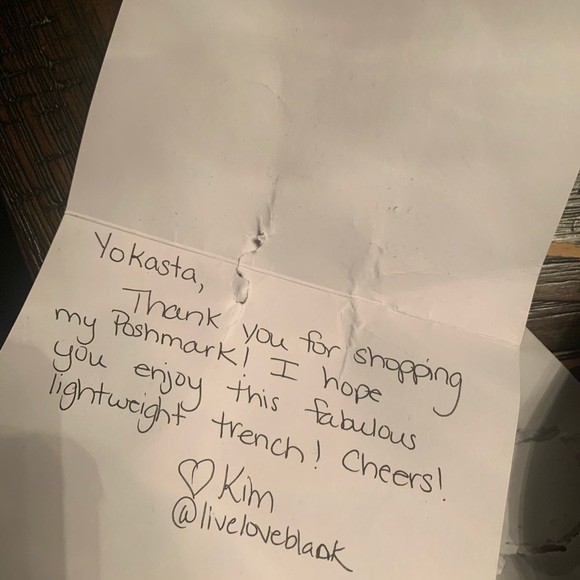 Yokasta,
Thank you for shopping
my Poshmark! I hope
you enjoy this fabulous
lightweight trench! Cheers!
♡ Kim
@liveloveblank